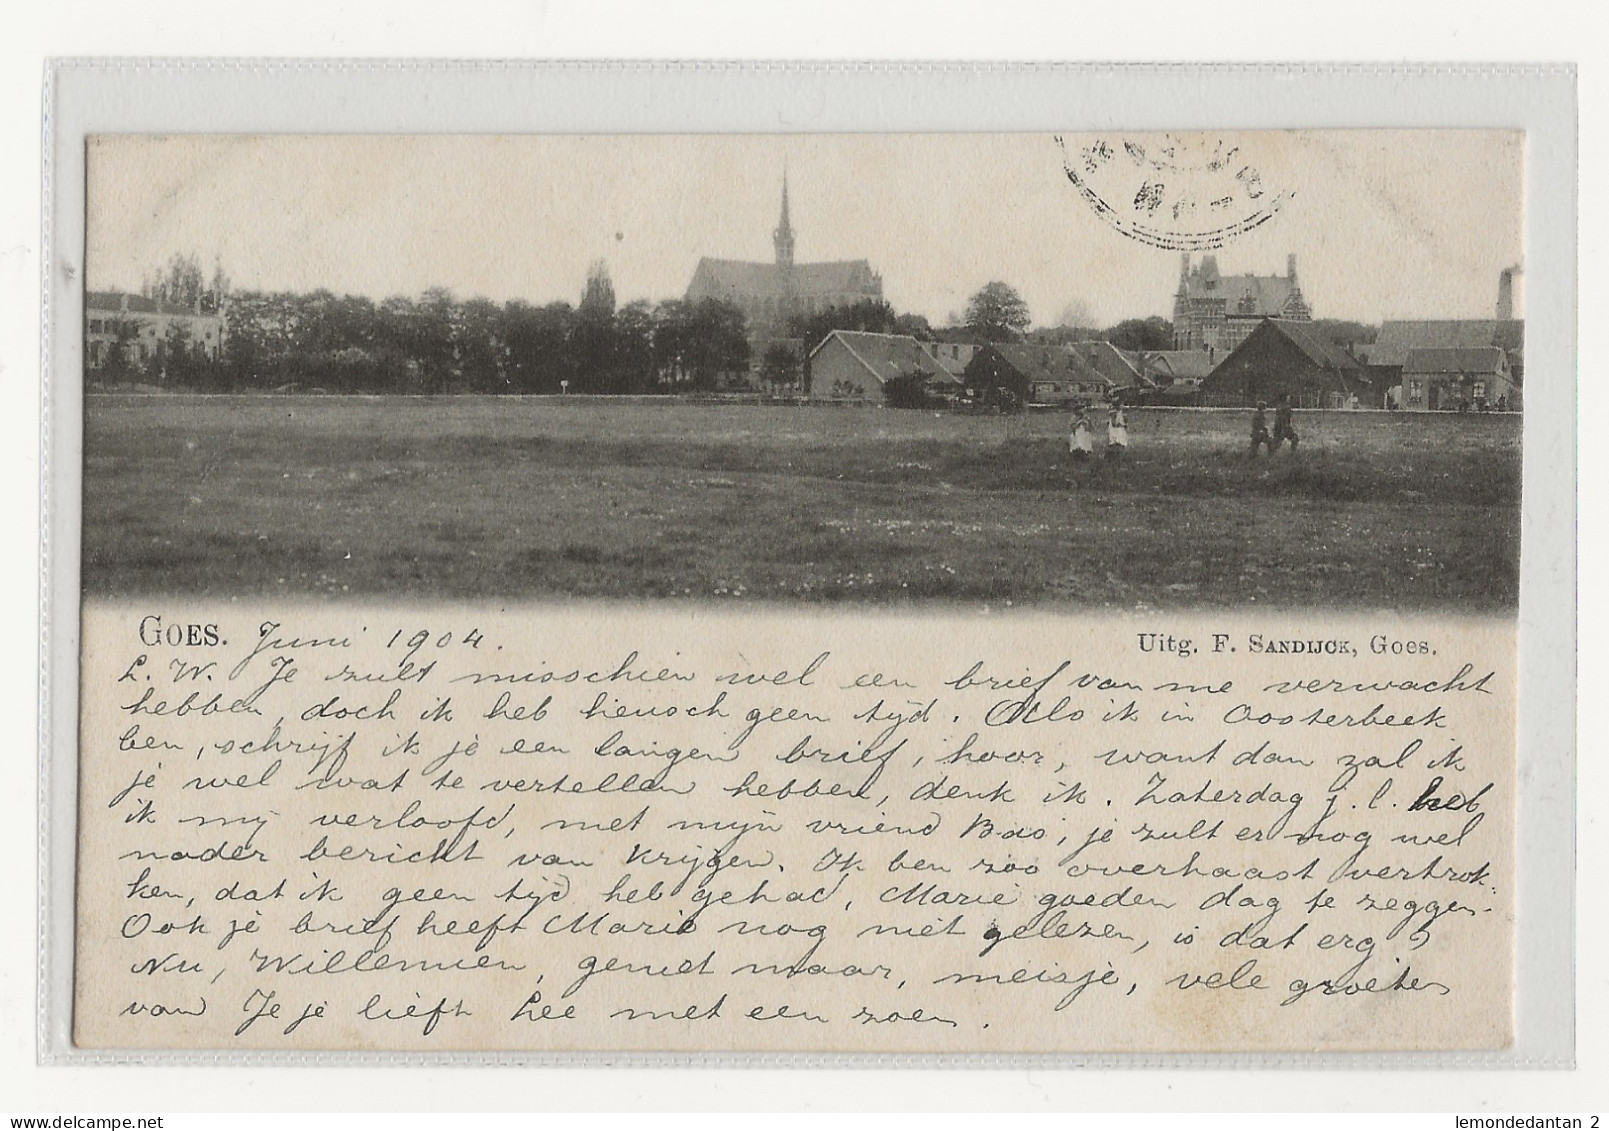 GOES. Juni 1904.
Uitg. F. SANDIJCK, Goes.
L. W. Je zult misschien wel een brief van me verwacht
hebben, doch ik heb heusch geen tijd. Als ik in Oosterbeek
ben, schrijf ik je een langen brief, hoor, want dan zal ik
je wel wat te vertellen hebben, denk ik. Zaterdag j.l. heb
ik mij verloofd, met mijn vriend Bas, je zult er nog wel
nader bericht van krijgen. Ik ben zoo overhaast vertrok-
ken, dat ik geen tijd heb gehad, Marie goeden dag te zeggen.
Ook je brief heeft Marie nog niet gelezen, is dat erg?
Nu, Willemien, geniet maar, meisje, vele groeten
van Je je lieft Lee met een zoen.
lemondedantan 2